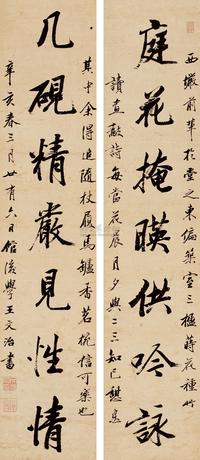 庭花掩暎供吟詠
西巘前輩於堂之東編築室三楹蒔花種竹
讀查敲詩每當花晨月夕與二三知己憩息
几硯精嚴見性情
其中余得追随杖履馬鑪香茗椀信可樂也
辛亥春三月廿有六日館後學王文治書